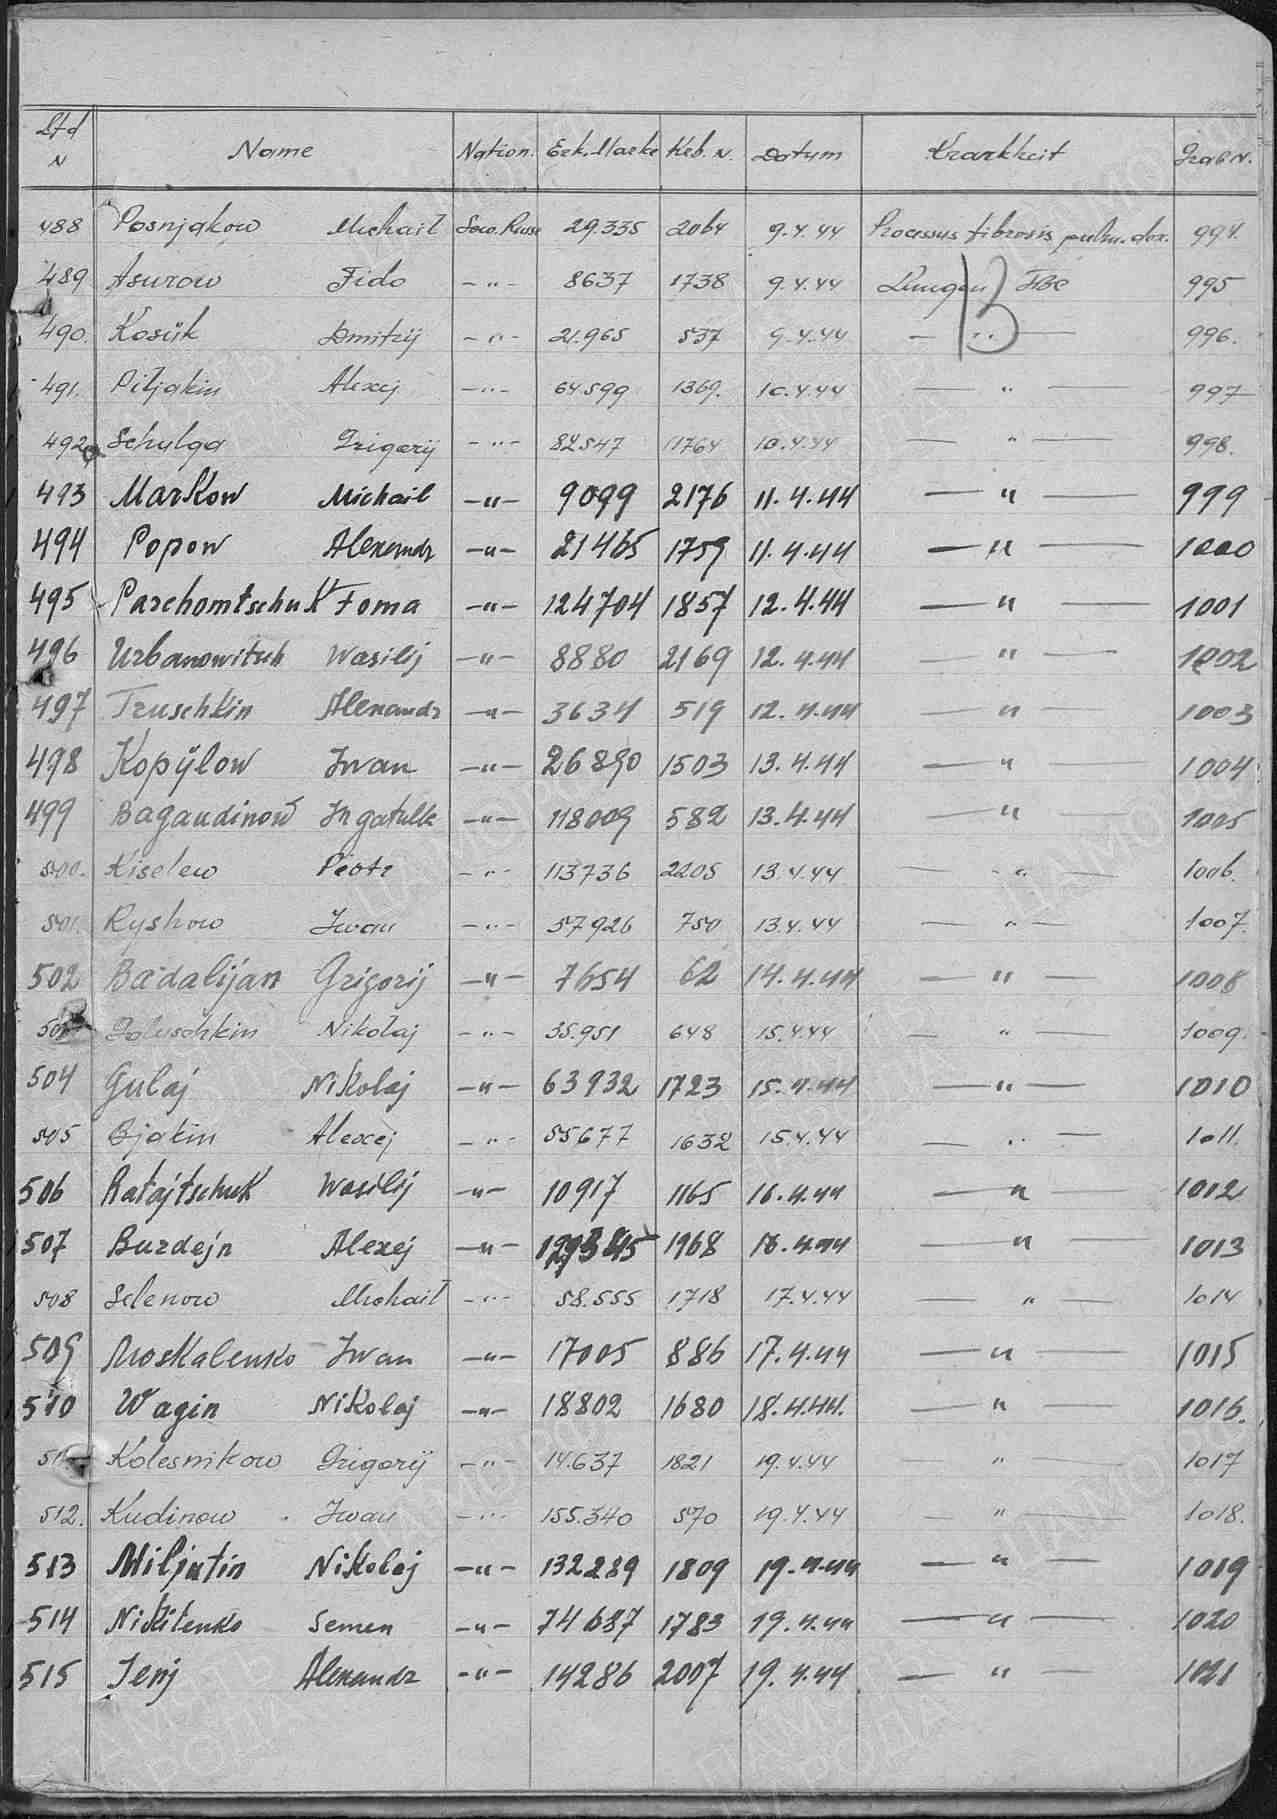 Lfd N Name Nation. Erk. Marke Krb. N. Datum Krankheit Grab N.
488 Posnjakow Michail Sow. Russe 29.335 2064 9.4.44 Processus fibrosis pulm. dex. 994.
489 Asurow Fido -"- 8637 1738 9.4.44 Lungen TBC 995
490. Kosük Dmitrij -"- 21.965 537 9.4.44 — " — 996.
491. Piljakin Alexej -"- 64599 1369. 10.4.44 — " — 997
492 Schulga Grigorij -"- 82547 11764 10.4.44 — " — 998.
493 Markow Michail -"- 9099 2176 11.4.44 — " — 999
494 Popow Alexandr -"- 21465 1759 11.4.44 — " — 1000
495 Parchomtschuk Foma -"- 124704 1857 12.4.44 — " — 1001
496 Urbanowitsch Wasilij -"- 8880 2169 12.4.44 — " — 1002
497 Truschkin Alexandr -"- 3634 519 12.4.44 — " — 1003
498 Kopÿlow Iwan -"- 26890 1503 13.4.44 — " — 1004
499 Bagaudinow -"- 118009 582 13.4.44 — " — 1005
500. Kiselew Piotr -"- 113736 2205 13.4.44 — " — 1006.
501. Ryshow Iwan -"- 57926 750 13.4.44 — " — 1007.
502 Badalijan Grigorij -"- 7654 62 14.4.44 — " — 1008
Goluschkin Nikolaj -"- 35.951 648 15.4.44 — " — 1009.
504 Gulaj Nikolaj -"- 63932 1723 15.4.44 — " — 1010
505 Bjakin Alexej -"- 55677 1632 15.4.44 — " — 1011.
506 Ratajtschuk Wasilij -"- 10917 1165 16.4.44 — " — 1012
507 Burdejn Alexej -"- 1968 16.4.44 — " — 1013
508 Selenow Michail -"- 58.555 1718 17.4.44 — " — 1014
509 Moskalenko Iwan -"- 17005 886 17.4.44 — " — 1015
510 Wagin Nikolaj -"- 18802 1680 18.4.44. — " — 1016.
Kolesnikow Grigorij -"- 14.637 1821 19.4.44 — " — 1017
512. Kudinow Iwan -"- 155.340 570 19.4.44 — " — 1018.
513 Miljutin Nikolaj -"- 132289 1809 19.4.44 — " — 1019
514 Nikitenko Semen -"- 74637 1783 19.4.44 — " — 1020
515 Jenj Alexandr -"- 14286 2007 19.4.44 — " — 1021